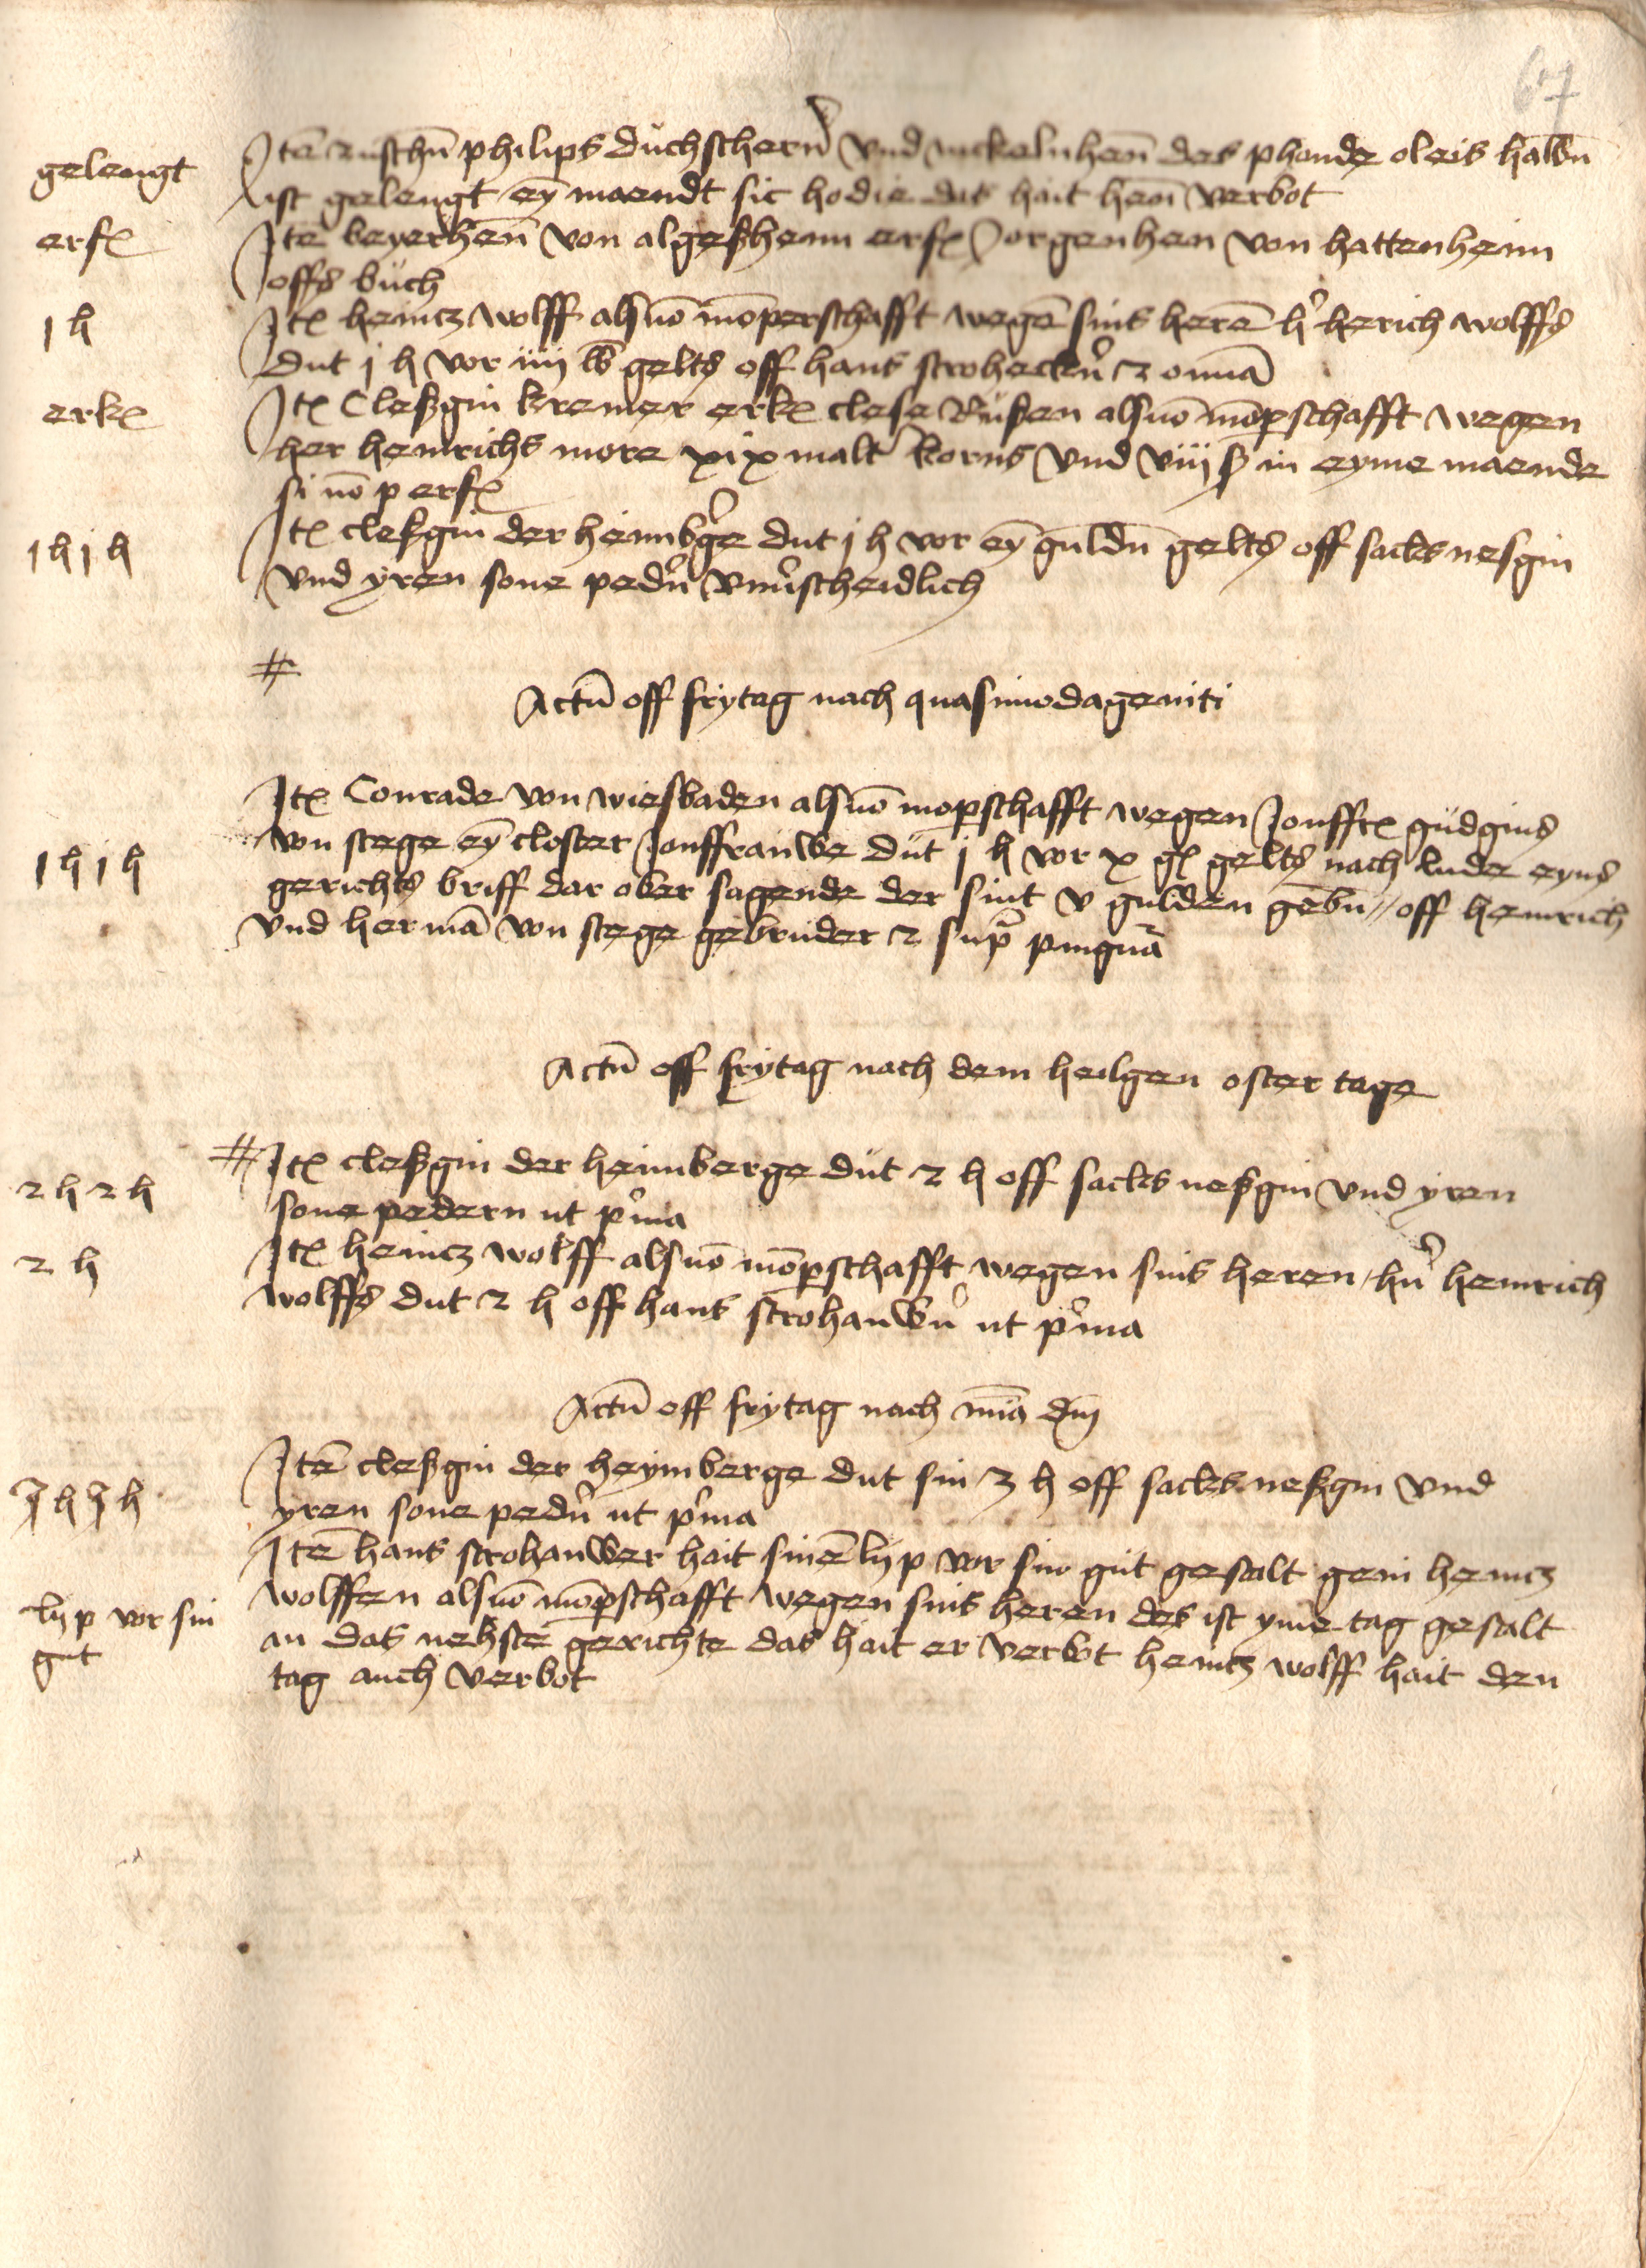 67
gelengt
Itē zuschē philips duchschern vnd nickelnhen des phande oleis halbn
ist gelengt ey maendt sic hodie das hait hen verbot
erf
Itē beyerhen von algeßheim erf Jorgenhen von hattenheim
offs buch
1 h
Itē heincz wolff als vō mōperschafft wegē sins herē h herich wolffs
dut j h vor iiij lb gelts off hans stroheckn 2 omā
erk
Itē Cleßgin kremer erk clese Rußen als vō mōpschafft wegen
her heinrichs more xix malt korns vnd viij ß in eyme maende
si nō p erf
1 h 1 h
Itē cleßgin der heimbge dut j h vor ey guldn gelts off sacks nesgin
vnd yren sone pedn vnuscheidlich
#
Actū off frytag nach quasimodageniti
1 h 1 h
Itē Conrade von wiesbaden als vō mopschafft wegen Jonffr gudgins
von stege ey closter Jonffrauwe dut j h vor x gl gelts nach lude eyns
gerichts briff dar ober sagende der sint v gulden gebn // off heinrich
vnd hermā von stege gebruder 2 sup pingnā
Actū off frytag nach dem heilgen oster tage
2 h 2 h
# Itē cleßgin der heimberge dut 2 h off sacks neßgin vnd yren
sone pedern ut pma
2 h
Itē heincz wolff als vō mōpschafft wegen sins heren hn heinrich
wolffs dut 2 h off hans strohauwn ut pma
Actū off frytag nach mia dni
3 h 3 h
Itē cleßgin der heymberge dut sin 3 h off sacks neßgin vnd
yren sone pedn ut pma
lyp vor sin
gut
Itē hans strohauwer hait sinē lyp vor sin gut gestalt gein heincz
wolffen als vō mōpschafft wegen sins heren des ist yme tag gestalt
an das nehste gerichte das hait er verbot heincz wolff hait den
tag auch verbot